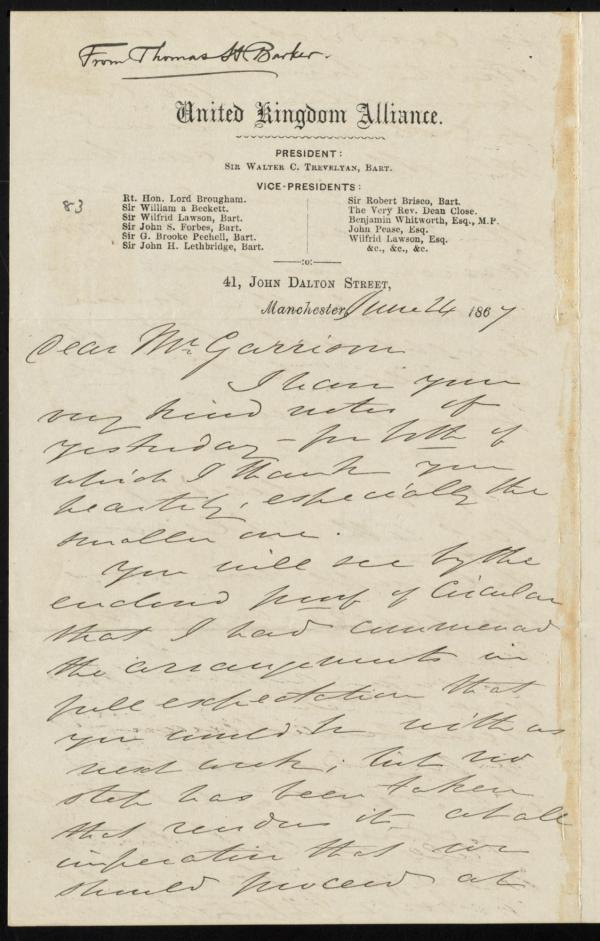 From Thomas H Barker.
United Kingdom Alliance.
PRESIDENT:
SIR WALTER C. TREVELYAN, BART.
VICE-PRESIDENTS:
83
Rt. Hon. Lord Brougham.
Sir William a Beckett.
Sir Wilfrid Lawson, Bart.
Sir John S. Forbes, Bart.
Sir G. Brooke Pechell, Bart.
Sir John H. Lethbridge, Bart.
Sir Robert Brisco, Bart.
The Very Rev. Dean Close.
Benjamin Whitworth, Esq., M.P.
John Pease, Esq.
Wilfrid Lawson, Esq.
&c., &c., &c.
:o:
41, JOHN DALTON STREET,
Manchester, June 24 1867
Dear Mr. Garrison
I have your
very kind notes of
yesterday – for both of
which I thank you
heartily, especially the
smaller one.
You will see by the
enclosed proof of Circular
that I had commenced
the arrangements in
full expectation that
you would be with us
next week; but no
step has been taken
that renders it at all
imperative that we
should proceed at